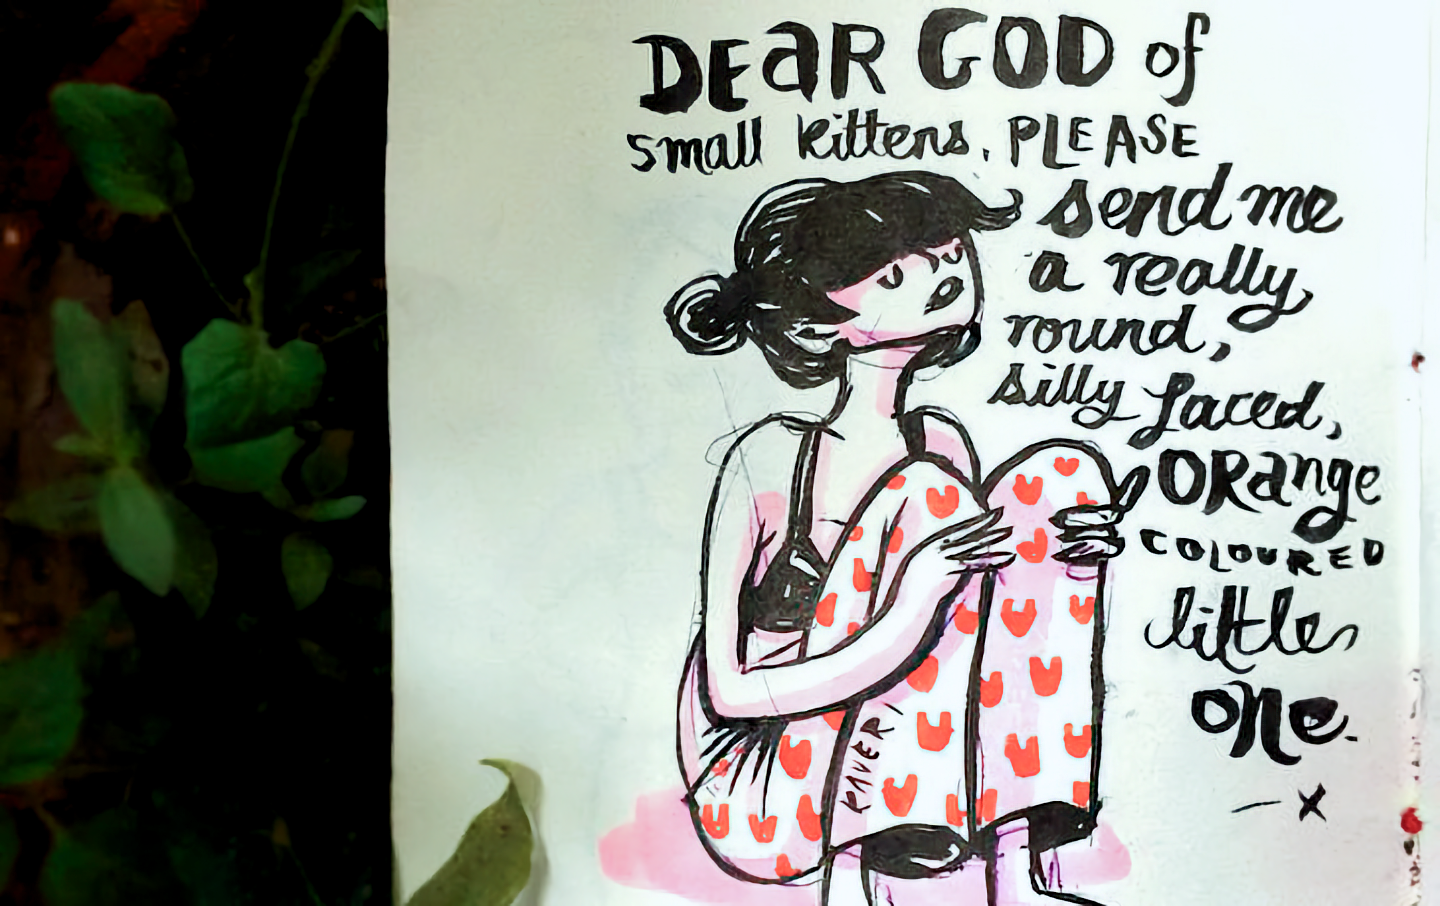 DEAR GOD of
small kittens, PLEASE
send me
a really,
round,
silly faced,
ORANGE
COLOURED
little
one.
– x
KAVERI